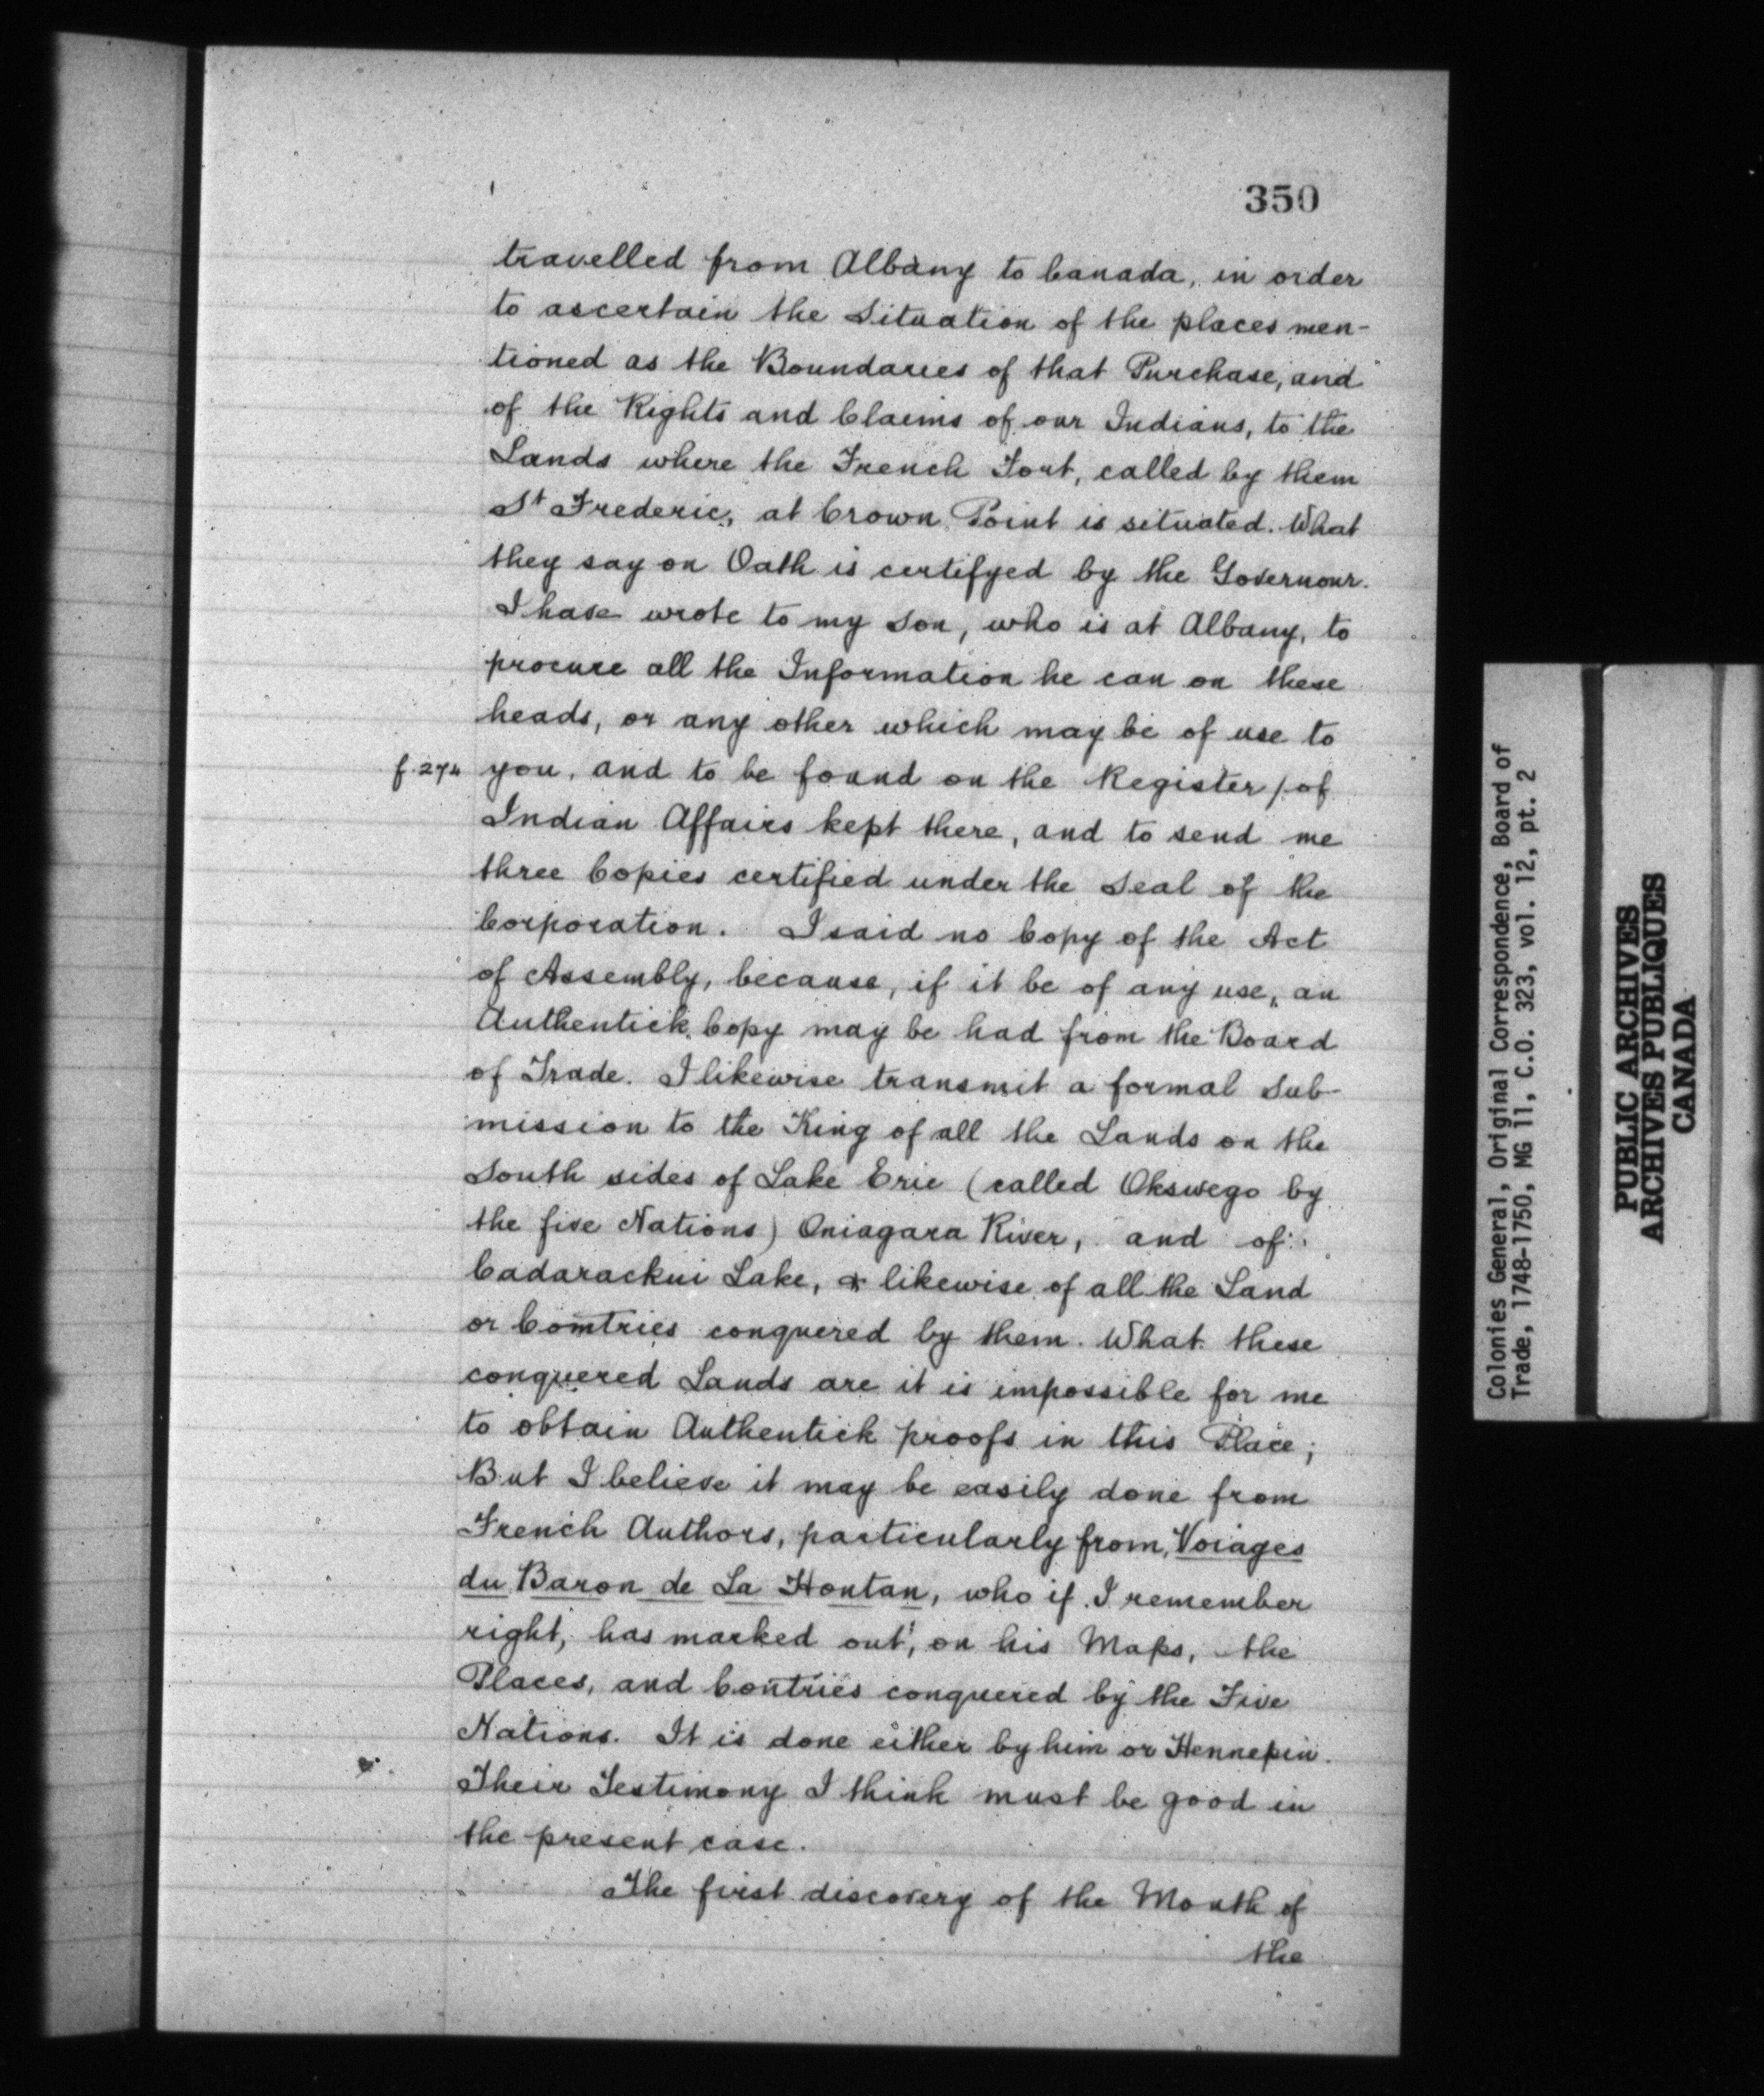 350
travelled from Albany to Canada, in order
to ascertain the Situation of the places men-
tioned as the Boundaries of that Purchase, and
of the Rights and Claims of our Indians, to the
Lands where the French Fort, called by them
St Frederic, at Crown Point is situated. What
they say on Oath is certifyed by the Governour.
I have wrote to my Son, who is at Albany, to
procure all the Information he can on these
heads, or any other which may be of use to
f. 274 you, and to be found on the Register / of
Indian Affairs kept there, and to send me
three Copies certified under the Seal of the
Corporation. I said no Copy of the Act
of Assembly, because, if it be of any use, an
Authentick Copy may be had from the Board
of Trade. I likewise transmit a formal Sub-
mission to the King of all the Lands on the
South sides of Lake Erie (called Okswego by
the five Nations) Oniagara River, and of
Cadarackui Lake, & likewise of all the Land
or Comtries conquered by them. What these
conquered Lands are it is impossible for me
to obtain Authentick proofs in this Place;
But I believe it may be easily done from
French Authors, particularly from, Voiages
du Baron de La Hontan, who if I remember
right, has marked out, on his Maps, the
Places, and Contries conquered by the Five
Nations. It is done either by him or Hennepin.
Their Testimony I think must be good in
the present case.
The first discovery of the Mouth of
the
Colonies General, Original Correspondence, Board of
Trade, 1748-1750, MG 11, C.O. 323, vol. 12, pt. 2
PUBLIC ARCHIVES
ARCHIVES PUBLIQUES
CANADA